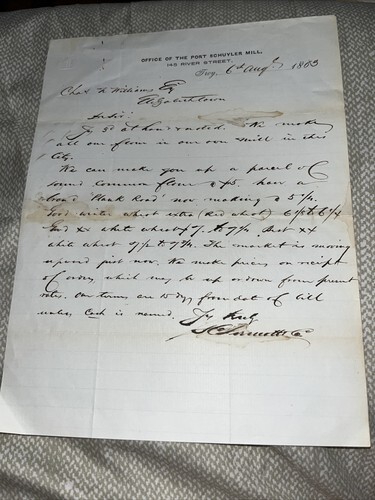 OFFICE OF THE PORT SCHUYLER MILL,
143 RIVER STREET,
Troy, 6th Augt 1863
Chas N Williams Esq
Elizabethtown
Dr Sir:
Yr 5th at hand & noted. We make
all our flour in our own mill in this
City.
We can make you up a parcel of
sound common flour @ $5. have a
brand "Plank Road" now making @ 5 3/4.
Good winter wheat extra (Red wheat) 6 1/2 to 6 3/4
Good XX white wheat 7 to 7 1/4 Best XX
white wheat 7 1/2 to 7 3/4. The market is moving
upward just now. We make prices on receipt
of order, which may be up or down from present
rates. Our terms are 10 dys from date of bill
unless Cash is named.
Yrs truly